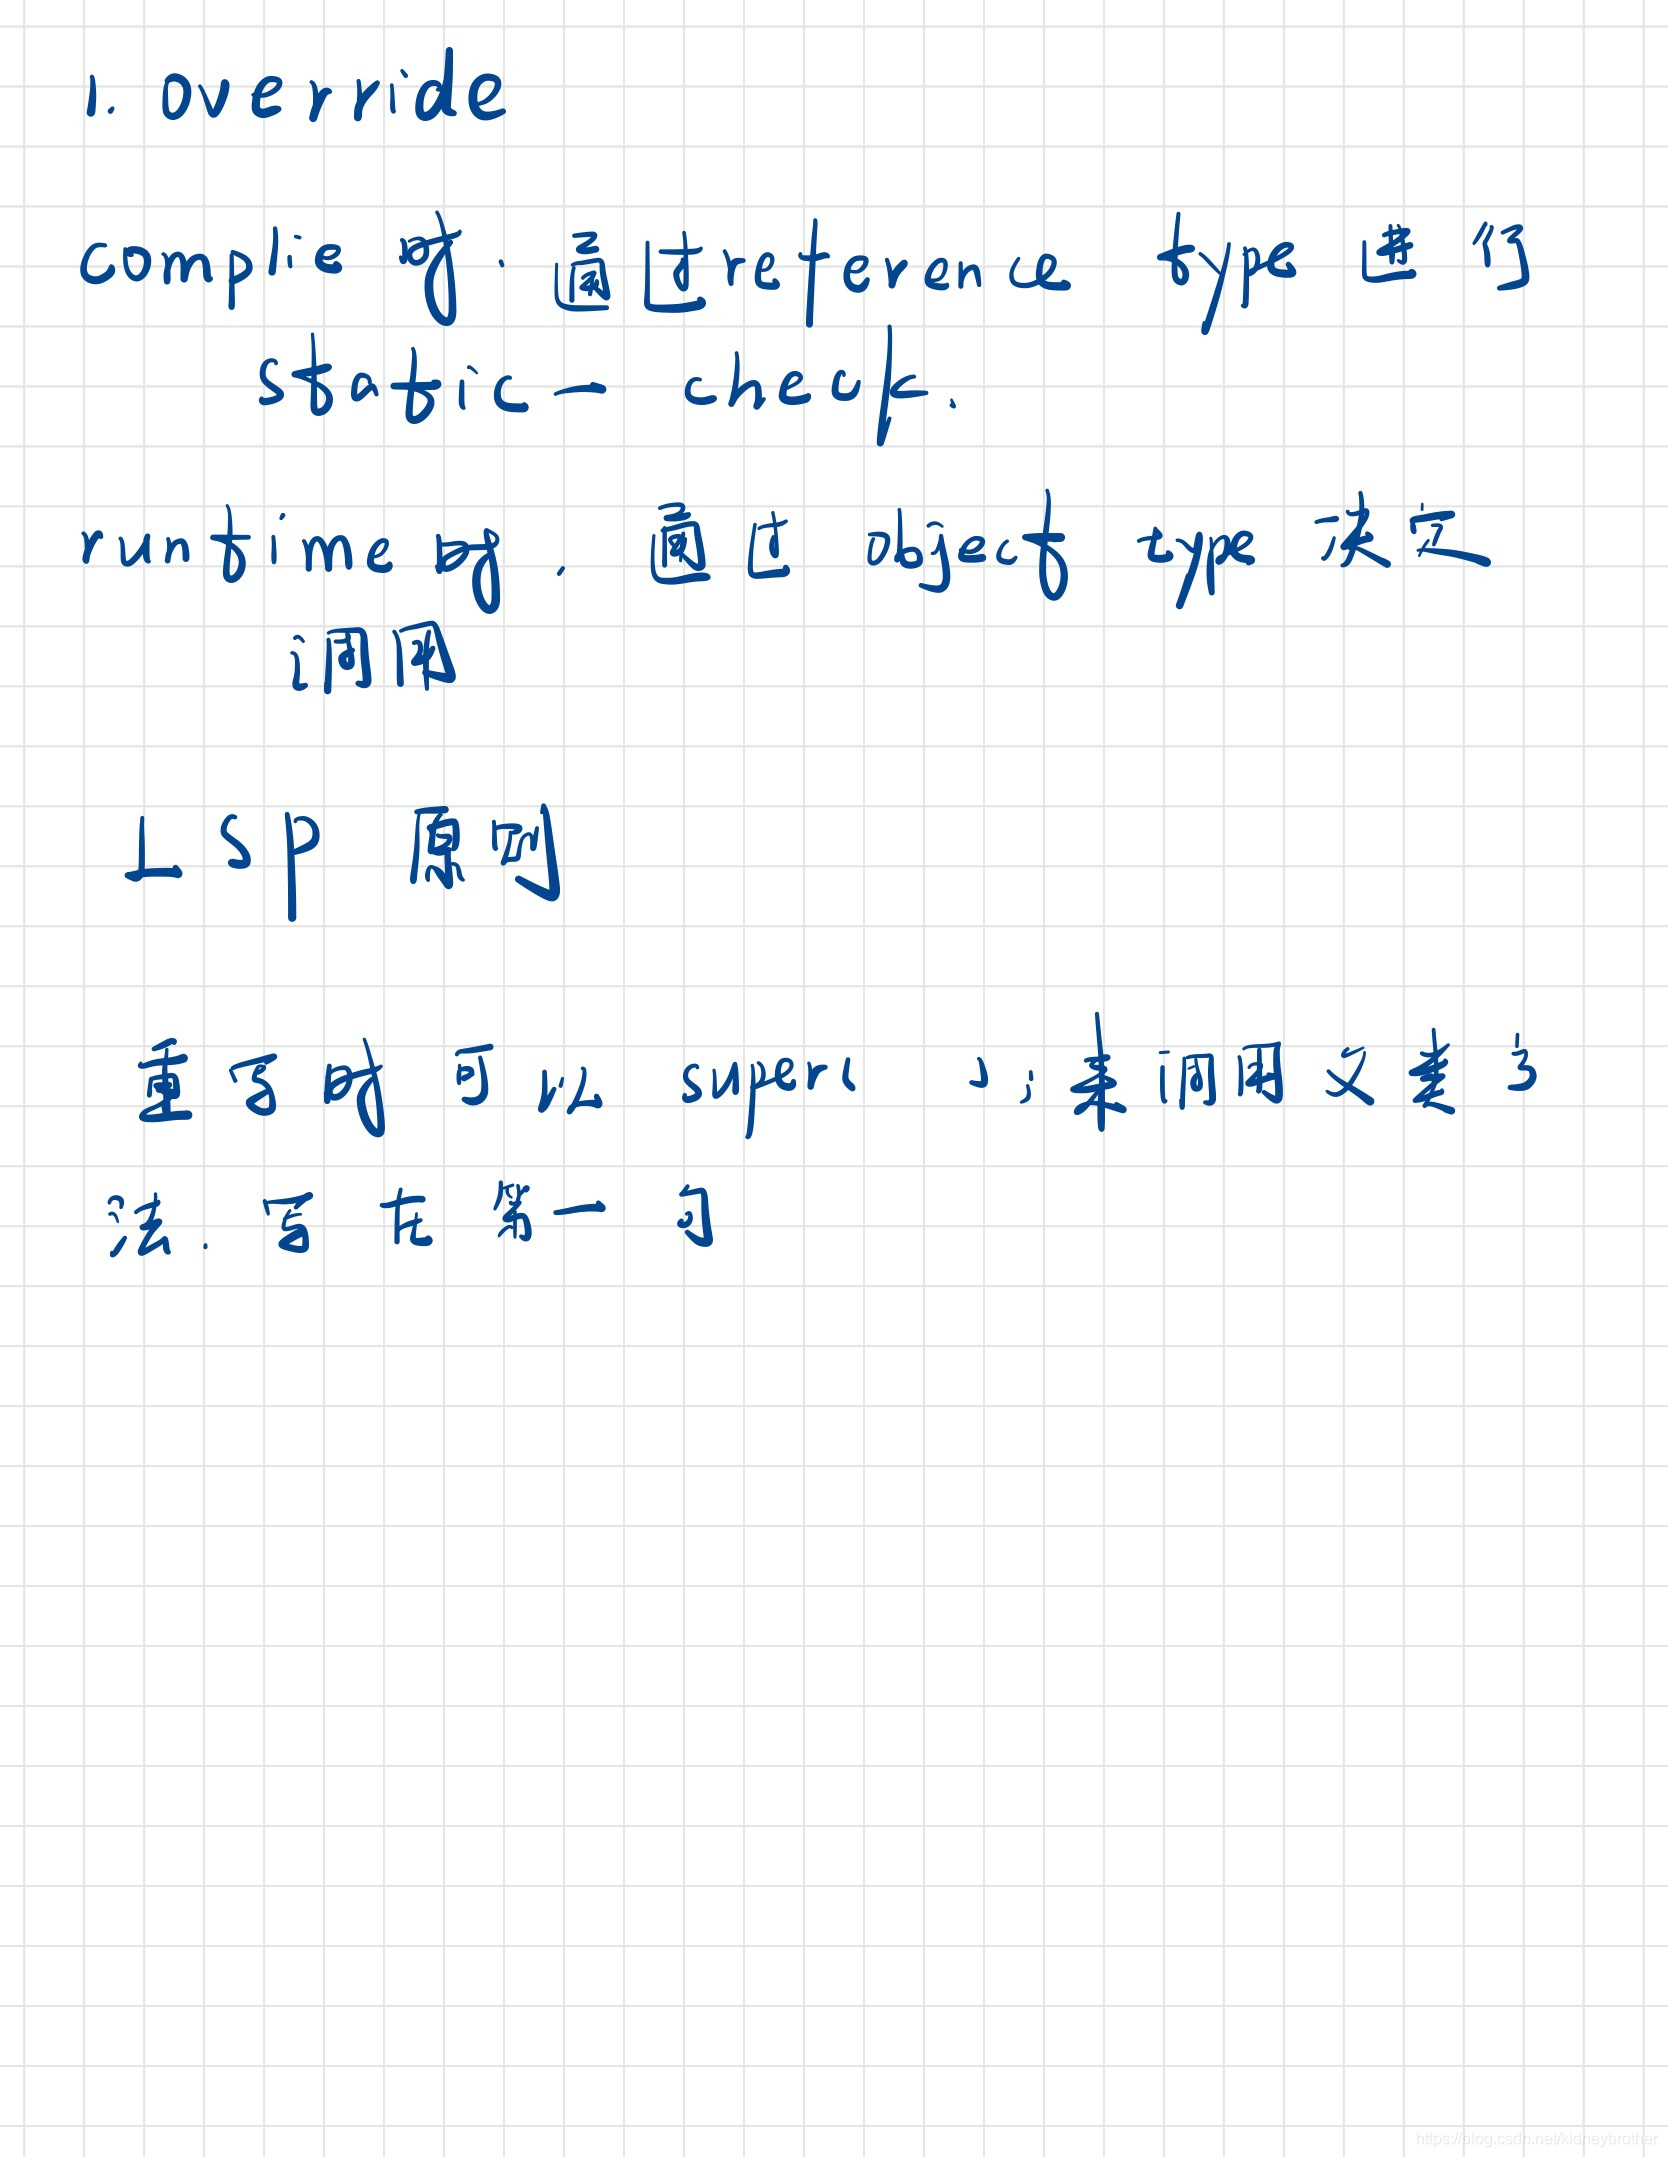 1. override
complie 时. 通过reference type 进行
static- check.
runtime时, 通过 object type 决定
调用
LSP 原则
重写时可以 super( ); 来调用父类方
法. 写在第一句
https://blog.csdn.net/kidneybrother